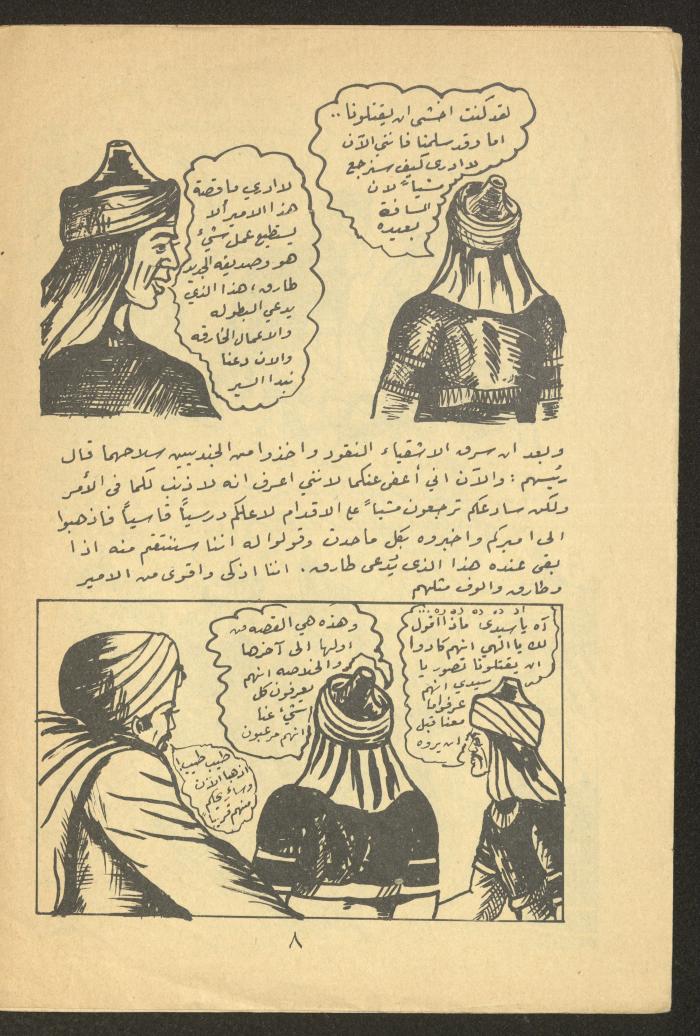 لقد كنت اخشى ان يقتلونا ..
اما وقد سلمنا فانني الآن
لا ادري كيف سنرجع
مشياً لان
المسافة
بعيده
لا ادري ما قصة
هذا الامير ألا
يستطيع عمل شيء
هو وصديقه الجديد
طارق، هذا الذي
يدعي البطوله
والاعمال الخارقه
والان دعنا
نبدا السير
وبعد ان سرق الاشقياء النقود واخذوا من الجنديين سلاحهما قال
رئيسهم : والآن اني أعفي عنكما لانني اعرف انه لا ذنب لكما في الأمر
ولكن سادعكم ترجعون مشياً على الاقدام لاعلمكم درسياً قاسياً فاذهبوا
الى اميركم واخبروه بكل ما حدث وقولوا له اننا سننتقم منه اذا
بقى عنده هذا الذي يُدعى طارق. اننا اذكى واقوى من الامير
وطارق والوف مثلهم
آه يا سيدي ماذا اقول
لك يا الهي انهم كادوا
ان يقتلونا تصور يا
سيدي انهم
عرفوا ما
معنا قبل
ان يروه
وهذه هي القصه من
اولها الى آخرها
والخلاصه انهم
يعرفون كل
شيء عنا
انهم مرعبون
طيب طيب
اذهبا الآن
وساريحكم
منهم قريباً
٨